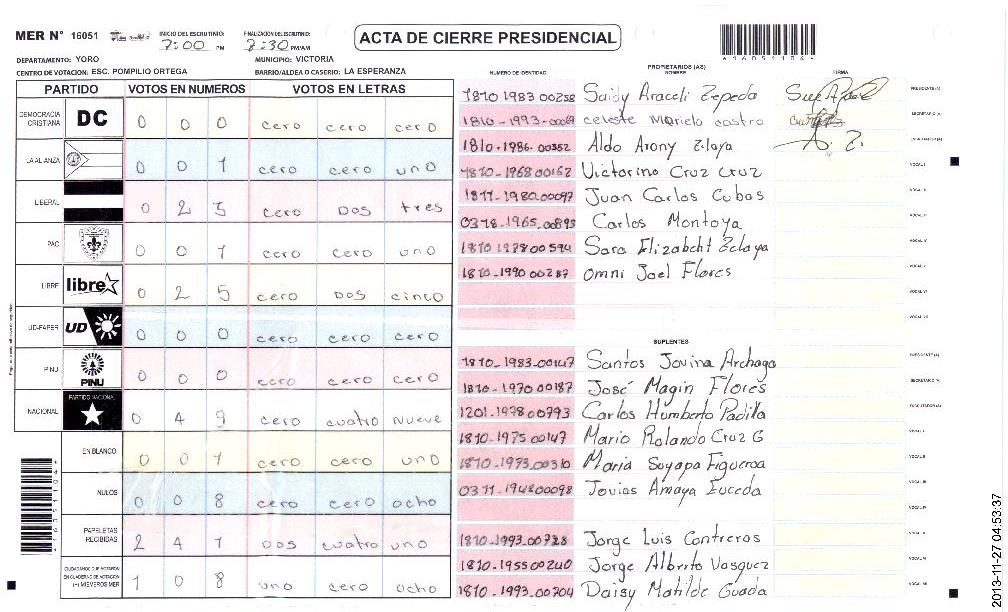 MER N° 16051
INICIO DEL ESCRUTINIO: 7:00 PM
FINALIZACION DEL ESCRUTINIO: 7:30 PM/AM
ACTA DE CIERRE PRESIDENCIAL
DEPARTAMENTO: YORO
MUNICIPIO: VICTORIA
CENTRO DE VOTACION: ESC. POMPILIO ORTEGA
BARRIO/ALDEA O CASERIO: LA ESPERANZA
PARTIDO VOTOS EN NUMEROS VOTOS EN LETRAS
DEMOCRACIA CRISTIANA DC 0 0 0 cero cero cero
LA ALIANZA 0 0 1 cero cero uno
LIBERAL 0 2 3 cero Dos tres
PAC 0 0 1 cero cero uno
LIBRE libre 0 2 5 cero Dos cinco
UD-FAPER UD 0 0 0 cero cero cero
PINU PINU 0 0 0 cero cero cero
NACIONAL PARTIDO NACIONAL 0 4 9 cero cuatro Nueve
EN BLANCO 0 0 1 cero cero uno
NULOS 0 0 8 cero cero ocho
PAPELETAS RECIBIDAS 2 4 1 Dos cuatro uno
CIUDADANOS QUE VOTARON EN CUADERNO DE VOTACION (+) MIEMBROS MER 1 0 8 uno cero ocho
NUMERO DE IDENTIDAD PROPIETARIOS (AS) NOMBRE FIRMA
1810 1983 00258 Saidy Araceli Zepeda
1810-1993- celeste Mariela castro
1810-1986-00352 Aldo Arony Zelaya A. Z.
1810-1968 00162 Victorino Cruz Cruz
1811-1980.00097 Juan Carlos Cubas
0318-1965.00893 Carlos Montoya
1810 1978 00594 Sara Elizabeht Zelaya
1810-1990 00287 Omni Joel Flores
SUPLENTES
1810-1983-00147 Santos Jovina Archaga
1810-1970 00187 José Magin Flores
1201-1978 00793 Carlos Humberto Padilla
1810-1975 00147 Mario Rolando Cruz G
1810-1973.00310 Maria Suyapa Figueroa
0311-1948 00098 Jovias Amaya Euceda
1810-1993-00728 Jorge Luis Contreros
1810-1955 00240 Jorge Alberto Vasquez
1810-1993-00204 Daisy Matilde Guada
2013-11-27 04:53:37